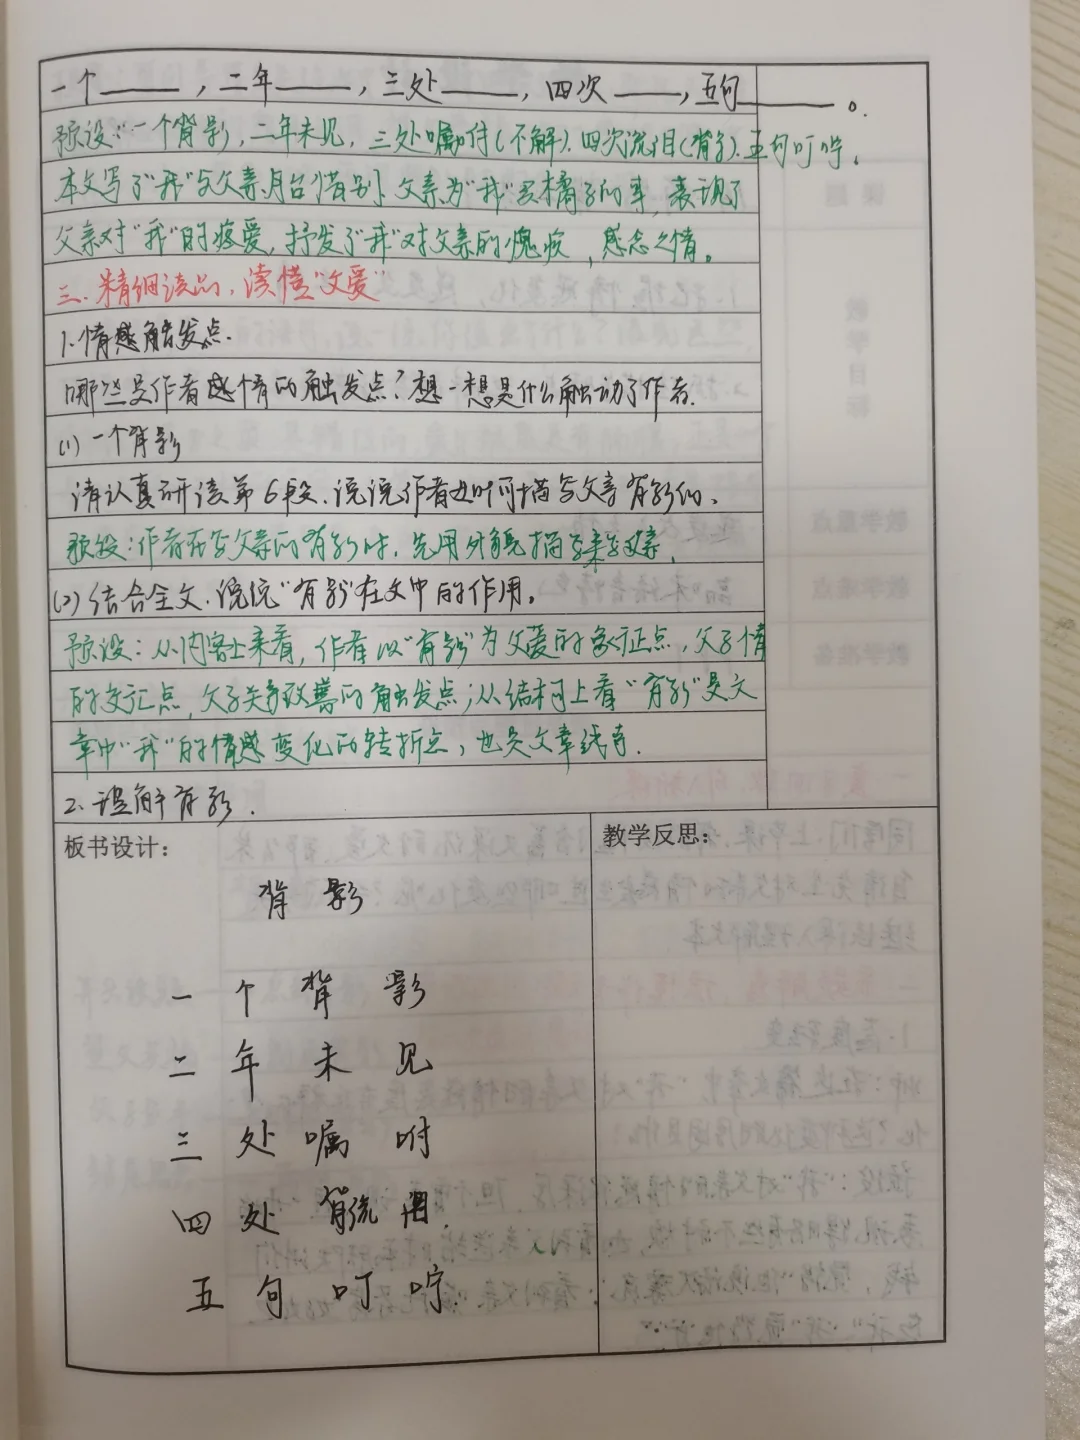 一个____，二年____，三处____，四次____，五句____。
预设：一个背影，二年未见，三处嘱咐（不解）.四次流泪（背影）.五句叮咛。
本文写了“我”与父亲月台惜别，父亲为“我”买橘子的事，表现了
父亲对“我”的疼爱，抒发了“我”对父亲的愧疚，感念之情。
三.精细读品，读懂“父爱”
1.情感触发点.
哪些是作者感情的触发点？想一想是什么触动了作者.
(1)一个背影
请认真研读第6段、说说作者是如何描写父亲背影的、
预设：作者在写父亲的背影时，先用外貌描写来写父亲.
(2)结合全文.说说“背影”在文中的作用。
预设：从内容上来看，作者以“背影”为父爱的象征点，父子情
的交汇点，父子关系改善的触发点；从结构上看“背影”是文
章中“我”的情感变化的转折点，也是文章线索.
2.误解背影.
板书设计：
教学反思：
背影
一个背影
二年未见
三处嘱咐
四处 流泪.
五句叮咛.